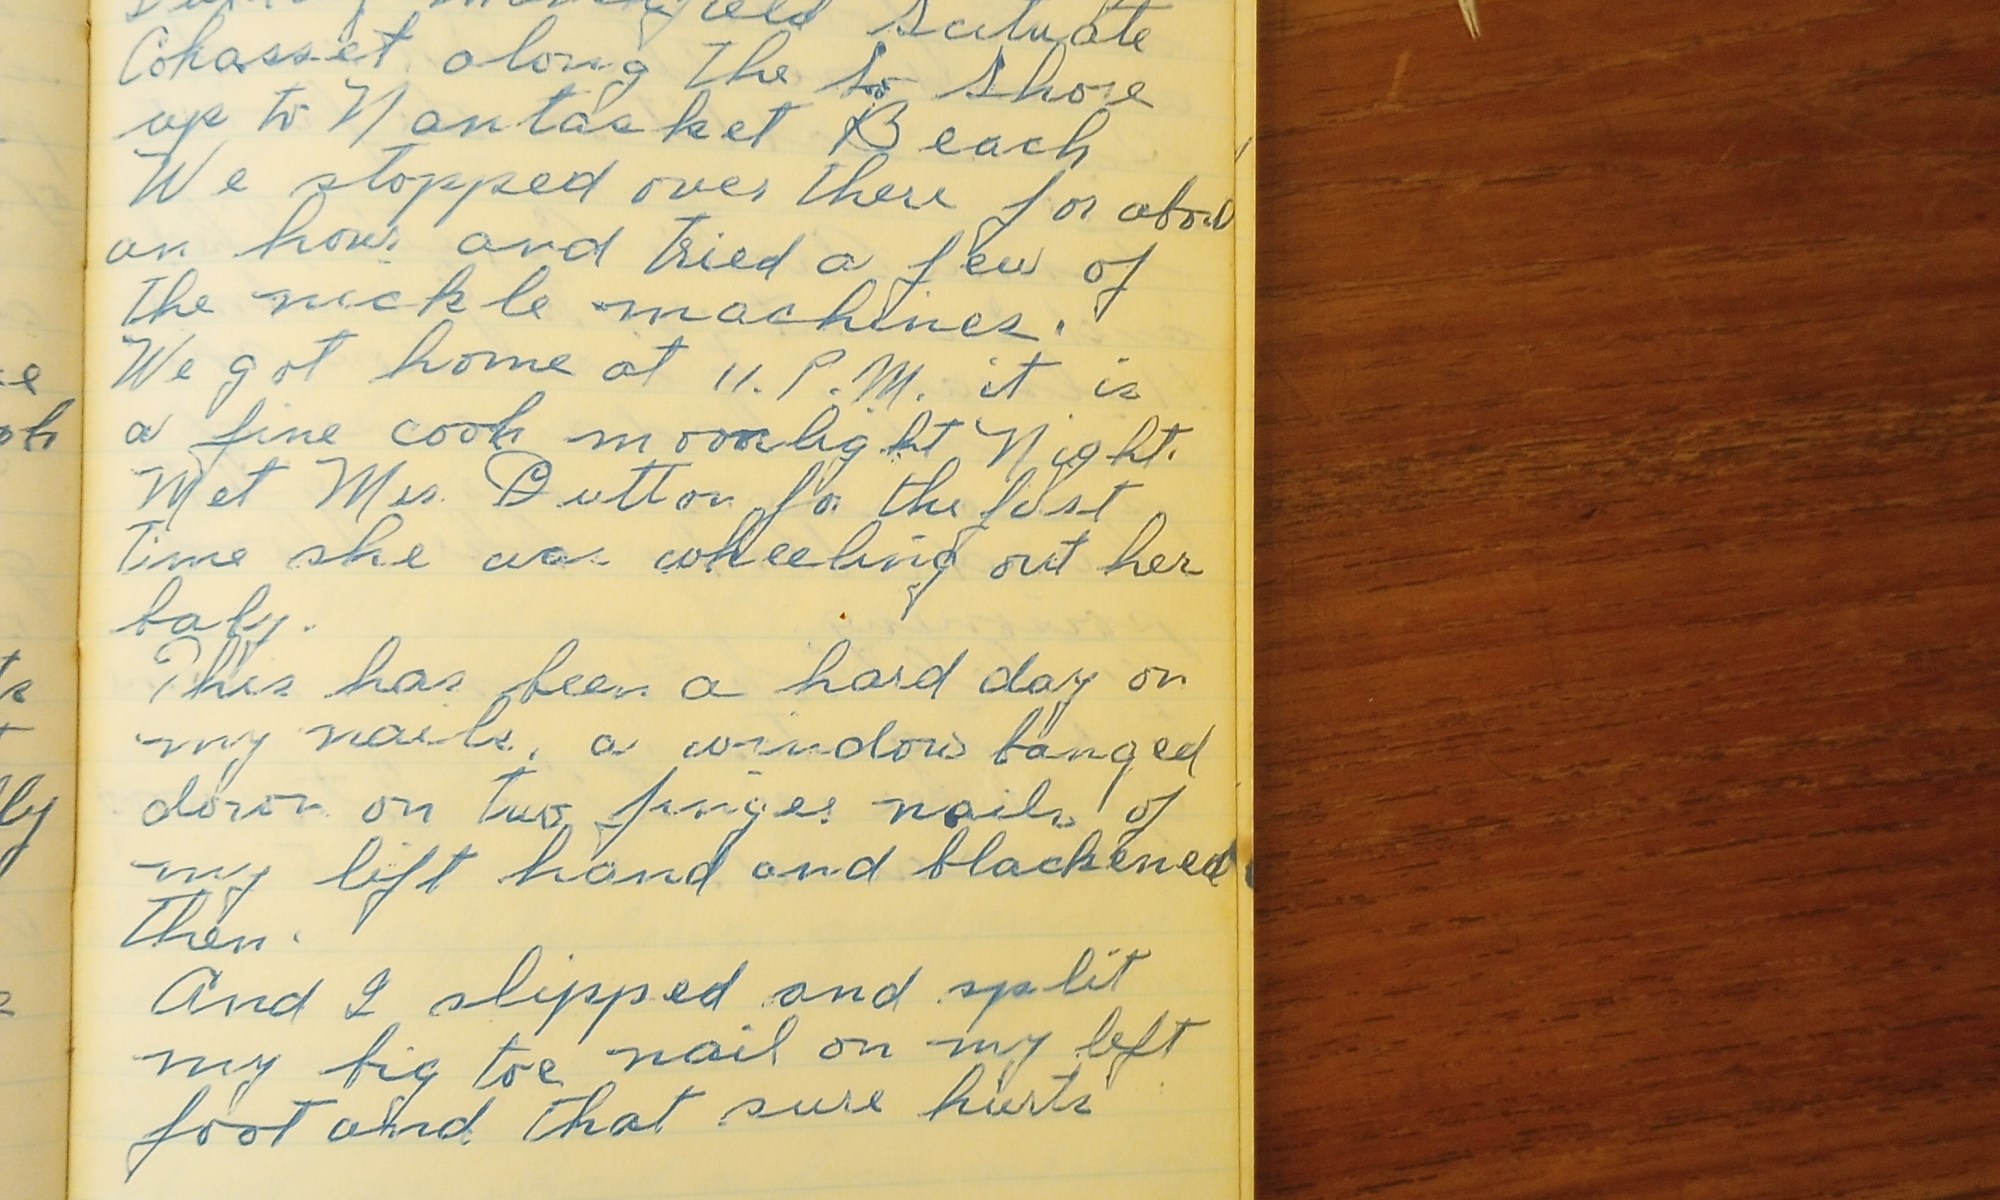 Scituate
Cohasset along the So Shore
up to Nantasket Beach
We stopped over there for about
an hour and tried a few of
the nickle machines.
We got home at 11. P.M. it is
a fine cook moonlight Night.
Met Mrs. Dutton for the first
time she was wheeling out her
baby.
This has been a hard day on
my nails, a window banged
down on two finger nails of
my left hand and blackened
then.
And I slipped and split
my big toe nail on my left
foot and that sure hurts